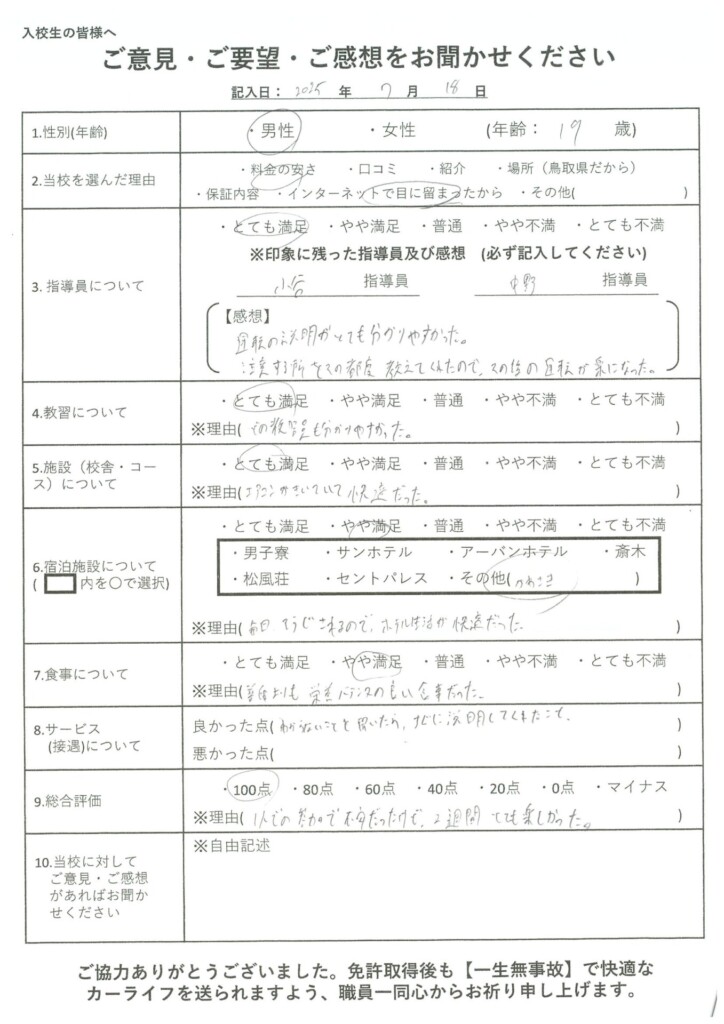 入校生の皆様へ
ご意見・ご要望・ご感想をお聞かせください
記入日： 2025 年 7 月 18 日
1.性別(年齢)
・男性 ・女性 (年齢： 19 歳)
2.当校を選んだ理由
・料金の安さ ・口コミ ・紹介 ・場所（鳥取県だから）
・保証内容 ・インターネットで目に留まったから ・その他( )
3. 指導員について
・とても満足 ・やや満足 ・普通 ・やや不満 ・とても不満
※印象に残った指導員及び感想 (必ず記入してください)
小谷 指導員 中野 指導員
【感想】
運転の説明がとても分かりやすかった。
注意する所をその都度 教えてくれたので、その後の運転が楽になった。
4.教習について
・とても満足 ・やや満足 ・普通 ・やや不満 ・とても不満
※理由( どの教習も分かりやすかった。 )
5.施設（校舎・コース）について
・とても満足 ・やや満足 ・普通 ・やや不満 ・とても不満
※理由( エアコンがきいていて 快適だった。 )
6.宿泊施設について
( 内を〇で選択)
・とても満足 ・やや満足 ・普通 ・やや不満 ・とても不満
・男子寮 ・サンホテル ・アーバンホテル ・斎木
・松風荘 ・セントパレス ・その他( )
※理由( 毎日 そうじされるので、ホテル生活が快適だった。 )
7.食事について
・とても満足 ・やや満足 ・普通 ・やや不満 ・とても不満
※理由( 普段よりも 栄養バランスの良い食事だった。 )
8.サービス
(接遇)について
良かった点( わからないことを聞いたら、すぐに説明してくれたこと、 )
悪かった点( )
9.総合評価
・100点 ・80点 ・60点 ・40点 ・20点 ・0点 ・マイナス
※理由( 1人での参加で不安だったけど、2週間 とても楽しかった。 )
10.当校に対して
ご意見・ご感想
があればお聞か
せください
※自由記述
ご協力ありがとうございました。免許取得後も【一生無事故】で快適な
カーライフを送られますよう、職員一同心からお祈り申し上げます。